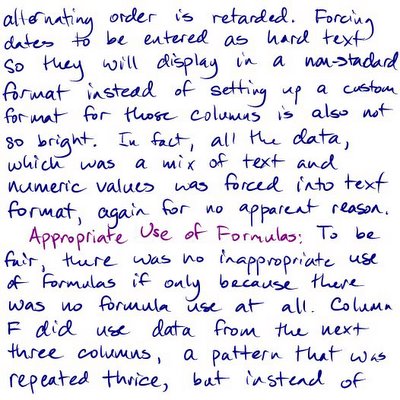 alternating order is retarded. Forcing
dates to be entered as hard text
so they will display in a non-stadard
format instead of setting up a custom
format for those columns is also not
so bright. In fact, all the data,
which was a mix of text and
numeric values was forced into text
format, again for no apparent reason.
Appropriate Use of Formulas: To be
fair, there was no inappropriate use
of formulas if only because there
was no formula use at all. Column
F did use data from the next
three columns, a pattern that was
repeated thrice, but instead of